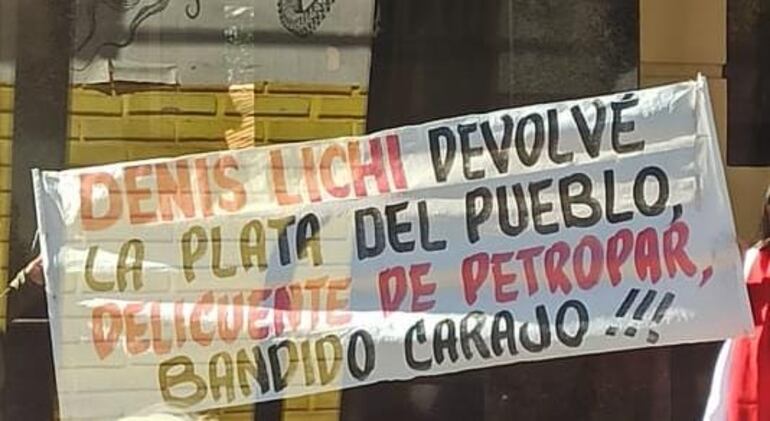 DENIS LICHI DEVOLVÉ
LA PLATA DEL PUEBLO,
DELICUENTE DE PETROPAR,
BANDIDO CARAJO !!!